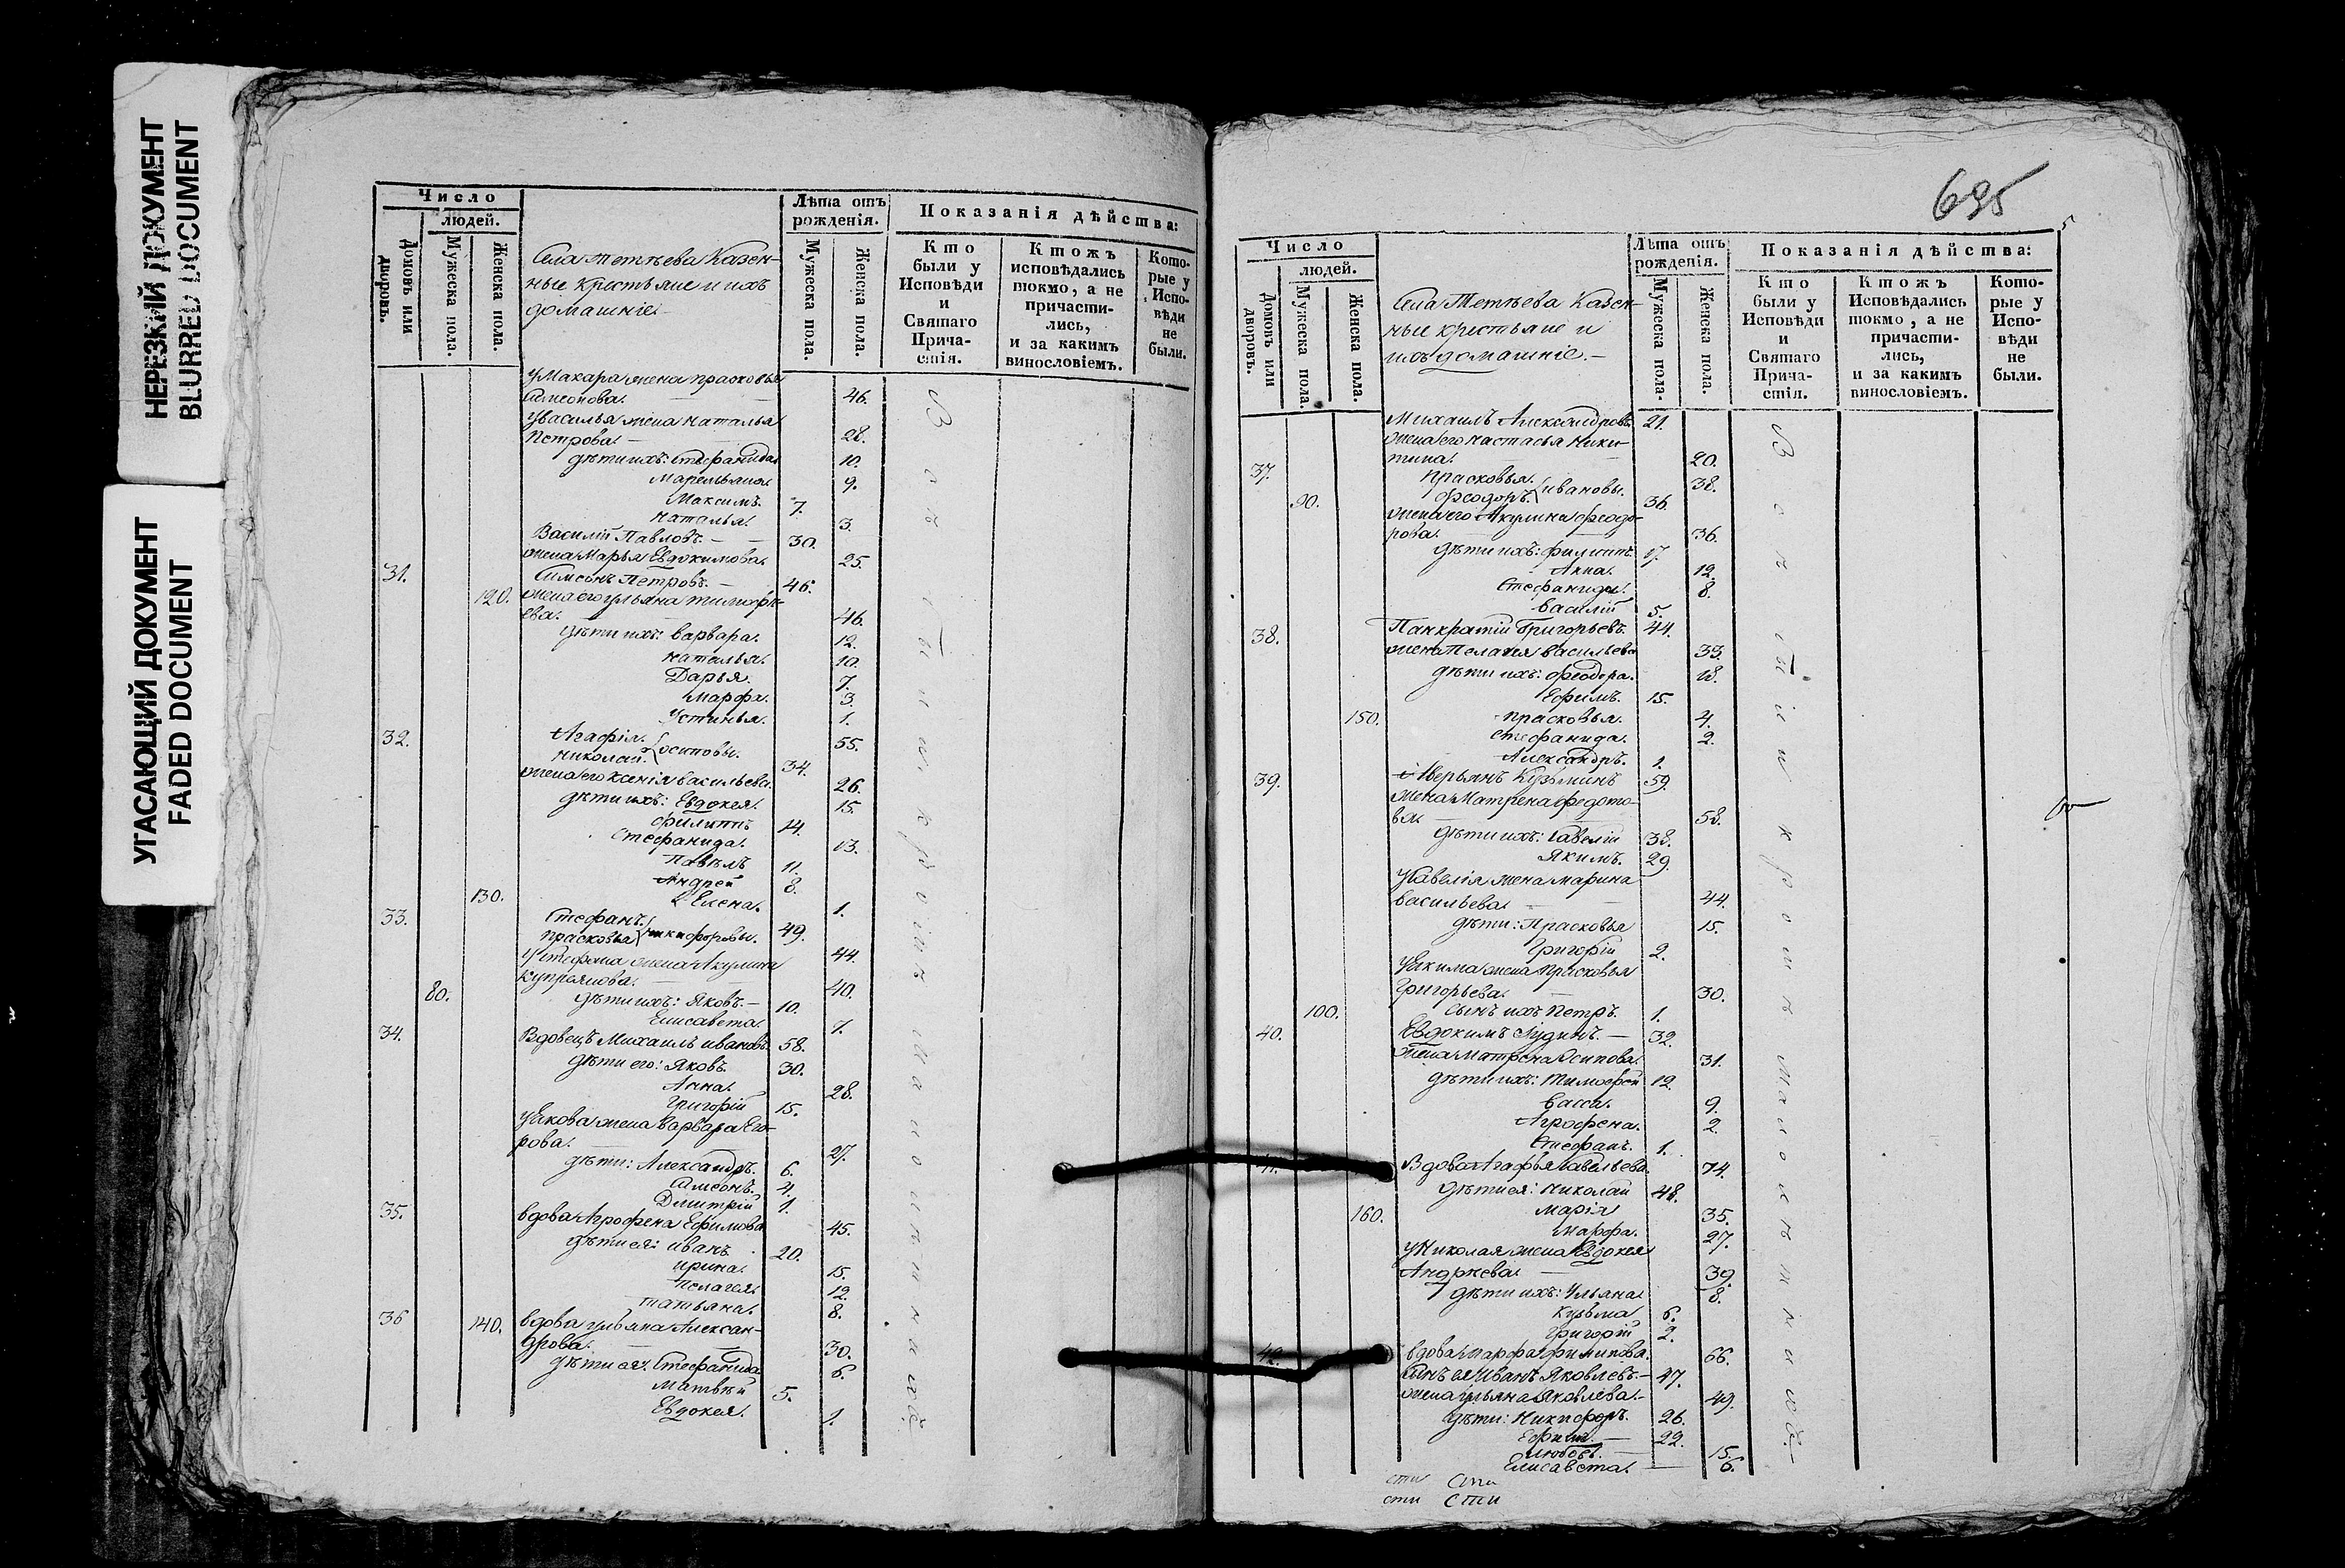 НЕРЕЗКИЙ ДОКУМЕНТ
BLURRED DOCUMENT
УГАСАЮЩИЙ ДОКУМЕНТ
FADED DOCUMENT
Число
людей.
Домовъ или дворовъ.
Мужеска пола.
Женска пола.
Села Тетѣева Казен-
ные крестьяне и ихъ
домашніе.
Лѣта отъ рожденія.
Мужеска пола.
Женска пола.
Показанія дѣйства:
Кто были у Исповѣди и Святаго Прича-стія.
Ктожъ исповѣдались токмо, а не причасти-лись, и за какимъ винословіемъ.
Кото-рые у Испо-вѣди не были.
У Макара жена Прасковья
Симеонова. 46.
У Василья жена Наталья
Петрова. 28.
дѣти ихъ: Стефанида 10.
9.
Максимъ. 7.
Наталья. 3.
Василій Павловъ. 30.
жена Марья Евдокимова. 25.
31. Симеонъ Петровъ. 46.
120. жена его Ульяна Тимофѣ-
ева. 46.
дѣти ихъ: Варвара. 12.
Наталья. 10.
Дарья. 7.
Марфа. 3.
Устинья. 1.
32. Агафія. 55.
Николай. Осиповы. 34.
жена его Ксенія Васильева. 26.
дѣти ихъ: Евдокея. 15.
Филиппъ 14.
Стефанида. 13.
Павелъ 11.
Андрей 8.
130. Елена. 1.
33. Стефанъ. 49.
Прасковья Никифоровы. 44.
У Стефана жена Акулина
Купреянова. 40.
80. дѣти ихъ: Яковъ. 10.
Елисавета. 7.
34. Вдовецъ Михаилъ Ивановъ 58.
дѣти его: Яковъ. 30.
Анна. 28.
Григорій 15.
У Якова жена Варвара Его-
рова. 27.
дѣти: Александръ. 6.
Симеонъ. 4.
Димитрій 1.
35. Вдова Агрофена Ефимова 45.
дѣти ея: Иванъ 20.
Ирина. 15.
Пелагея. 12.
Татьяна. 8.
36 140. Вдова Ульяна Алексан-
дрова. 30.
дѣти ея: Стефанида 6.
Матвѣй 5.
Евдокея. 1.
695
Число
людей.
Домовъ или дворовъ.
Мужеска пола.
Женска пола.
Села Тетѣева Казен-
ные крестьяне и
ихъ домашніе.
Лѣта отъ рожденія.
Мужеска пола.
Женска пола.
Показанія дѣйства:
Кто были у Исповѣди и Святаго Прича-стія.
Ктожъ Исповѣдались токмо, а не причасти-лись, и за какимъ винословіемъ.
Кото-рые у Испо-вѣди не были.
Михаилъ Александровъ. 21.
жена его Настасья Ники-
тина. 20.
37. Прасковья. 38.
90. Феодоръ. Ивановы. 36.
жена его Акулина Феодо-
рова. 36.
дѣти ихъ: Филиппъ. 17.
Анна. 12.
Стефанида. 8.
Василій 5.
38. Панкратій Григорьевъ. 44.
жена Пелагея Васильева 39.
дѣти ихъ: Феодора. 18.
Ефимъ. 15.
150. Прасковья. 4.
Стефанида. 2.
Александръ. 1.
39. Аверьянъ Кузьминъ 59.
жена Матрена Федото-
ва. 58.
дѣти ихъ: Савелій 38.
Якимъ. 29.
У Савелія жена Марина
Васильева. 44.
дѣти: Прасковья 15.
Григорій 2.
У Якима жена Прасковья
Григорьева. 30.
100. Сынъ ихъ Петръ. 1.
40. Евдокимъ Іудинъ. 32.
жена Матрена Осипова. 31.
дѣти ихъ: Тимофей 12.
Васса. 9.
Агрофена. 2.
Стефанъ. 1.
41. Вдова Агафья Савельева. 74.
дѣти ея: Николай 48.
160. Марія 35.
Марфа. 27.
У Николая жена Евдокея
Андреева. 39.
дѣти ихъ: Ульяна. 8.
Кузьма 6.
Григорій 2.
42. Вдова Марфа Филипова. 66.
Сынъ ея Иванъ Яковлевъ. 47.
жена Ульяна Яковлева. 49.
дѣти: Никифоръ. 26.
Ефимъ. 22.
Любовь. 15.
Елисавета. 6.
сти Сти
сти Сти